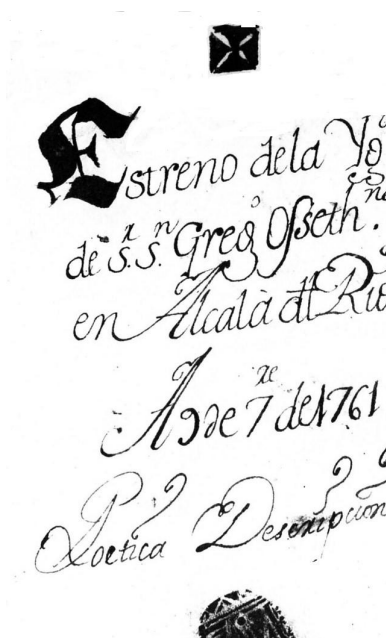 Estreno dela Yg
de S.r S.n Greg.o Osseth.no
en Alcalà dl Rio
A 9 de 7re de 1761
Poetica Descripcion